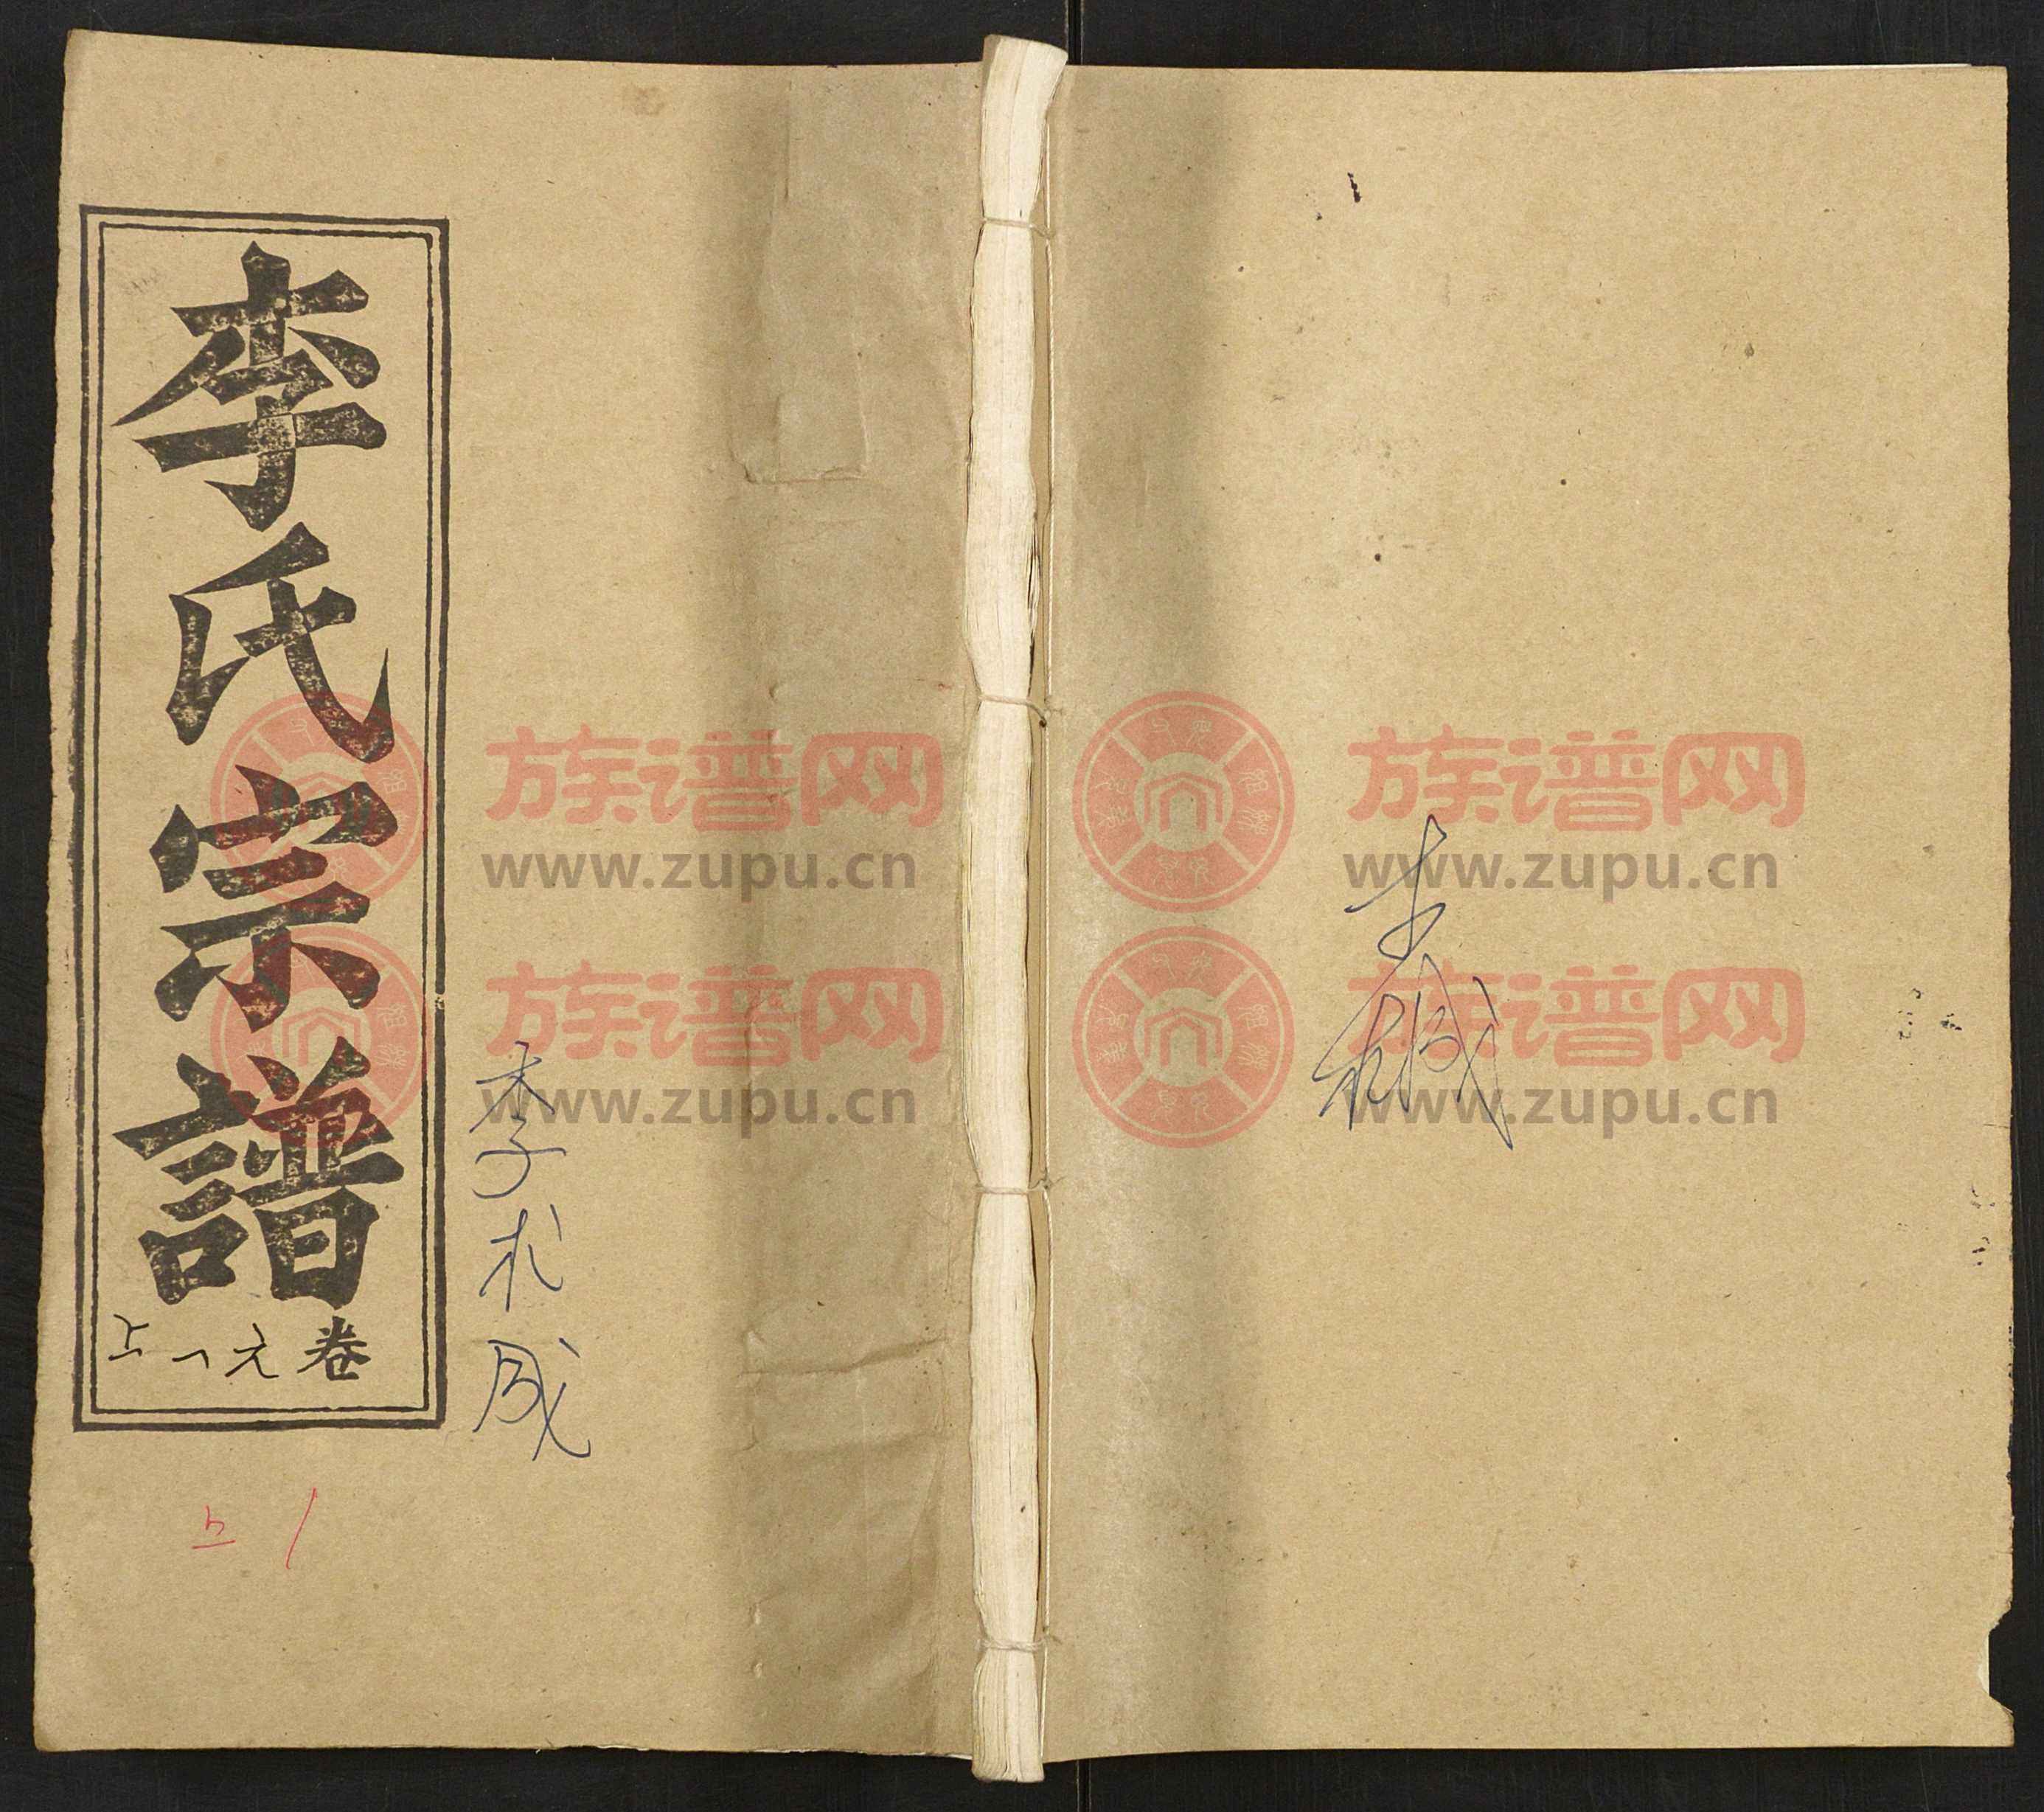 李氏宗譜
卷元一上
李求成
上 1
族谱网
www.zupu.cn
族谱网
www.zupu.cn
族谱网
www.zupu.cn
族谱网
www.zupu.cn